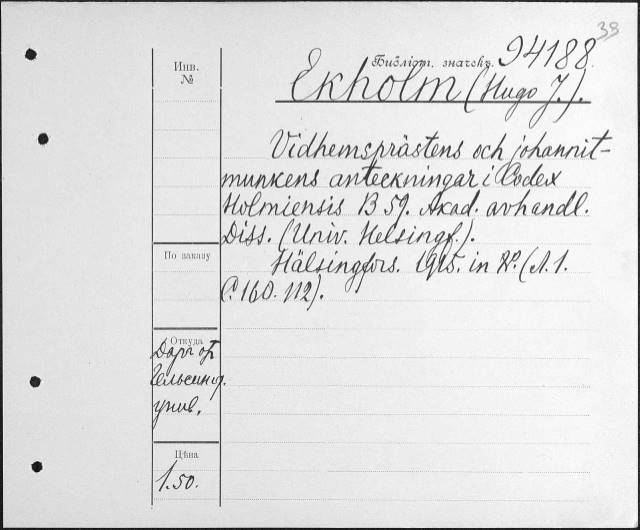 33
Инв.
№
Библіот. значекъ. 94188.
Ekholm (Hugo J.).
Vidhemsprästens och johannit-
munkens anteckningar i Codex
Holmiensis B 59. Akad. avhandl.
Diss. (Univ. Helsingf.).
По заказу
Hälsingfors. 1915. in 8º. (Л. 1.
С. 160. 112).
Откуда
Даръ от
Гельсингф.
унив.
Цѣна
1.50.